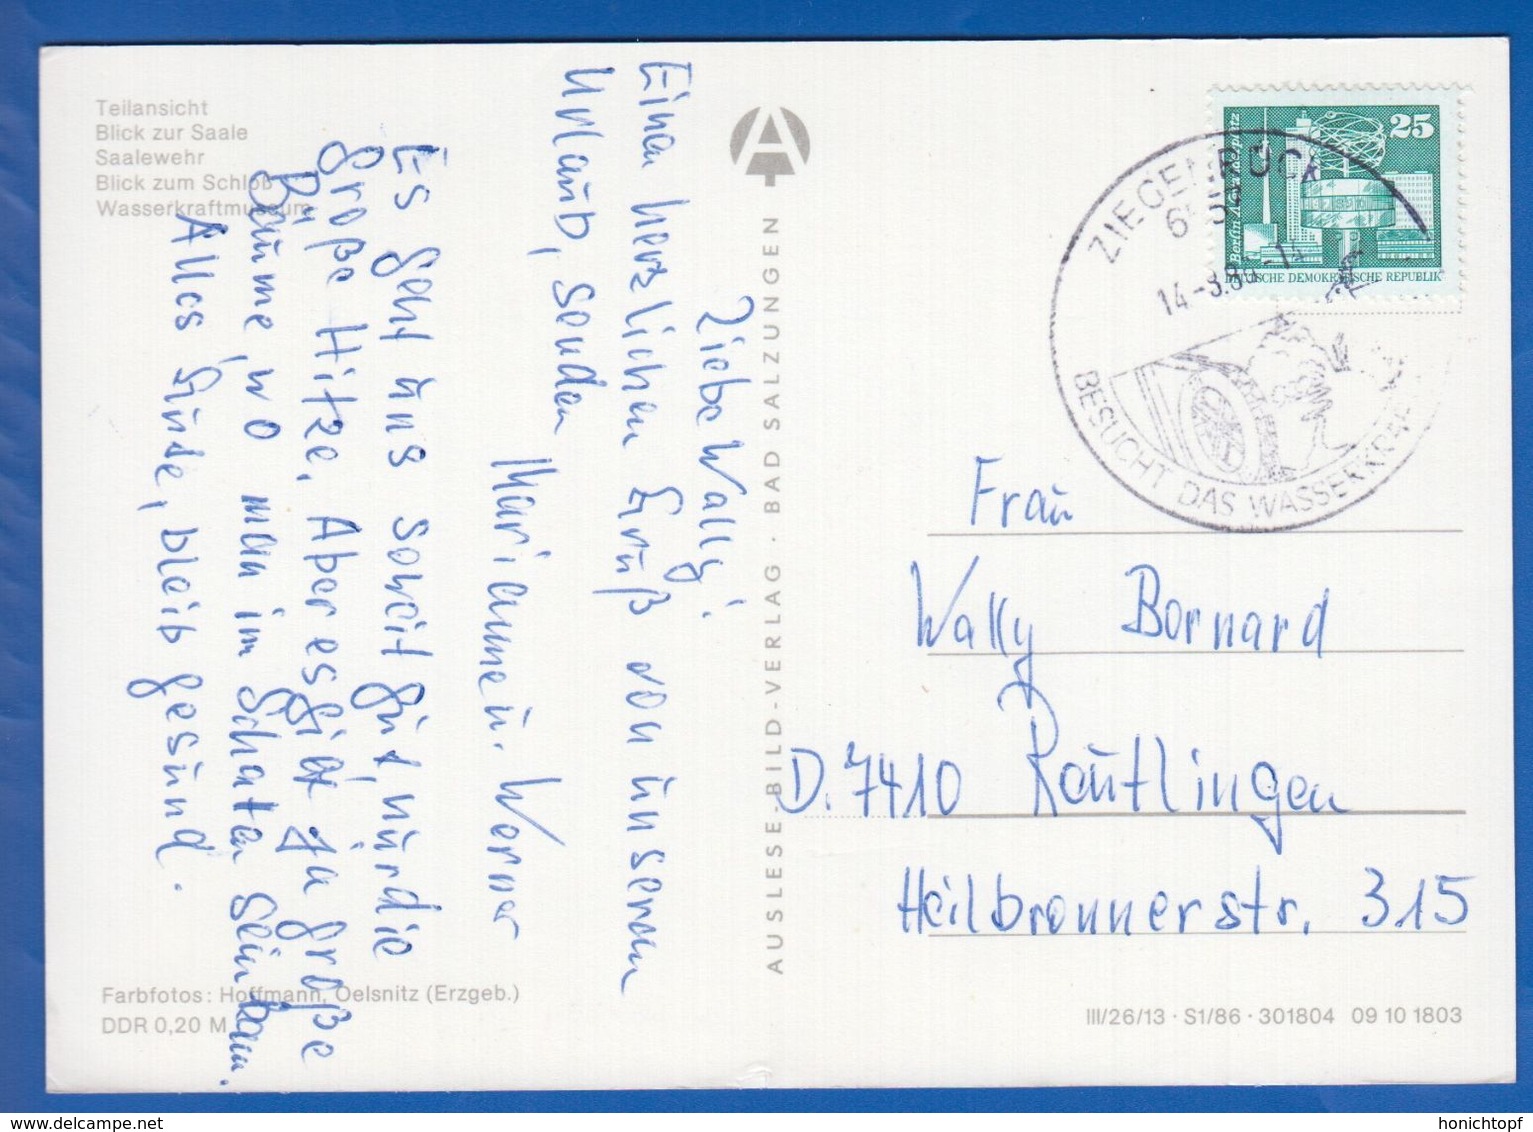 Teilansicht
Blick zur Saale
Saalewehr
Blick zum Schloß
Wasserkraftmuseum
Liebe Wally!
Einen herzlichen Gruß von unserem
Urlaub, senden
Marianne u. Werner
Es geht uns soweit gut, nur die
große Hitze. Aber es gibt ja große
Bäume, wo man im Schatten sein kann.
Alles Gute, bleib gesund.
Farbfotos: Hoffmann, Oelsnitz (Erzgeb.)
DDR 0,20 M
AUSLESE-BILD-VERLAG · BAD SALZUNGEN
25
Berlin Alexanderplatz
DEUTSCHE DEMOKRATISCHE REPUBLIK
ZIEGENRÜCK
BESUCHT DAS WASSERKRAF
Frau
Wally Bernard
D. 7410 Reutlingen
Heilbronnerstr. 315
III/26/13 · S1/86 · 301804 09 10 1803
delcampe.net
honichtopf